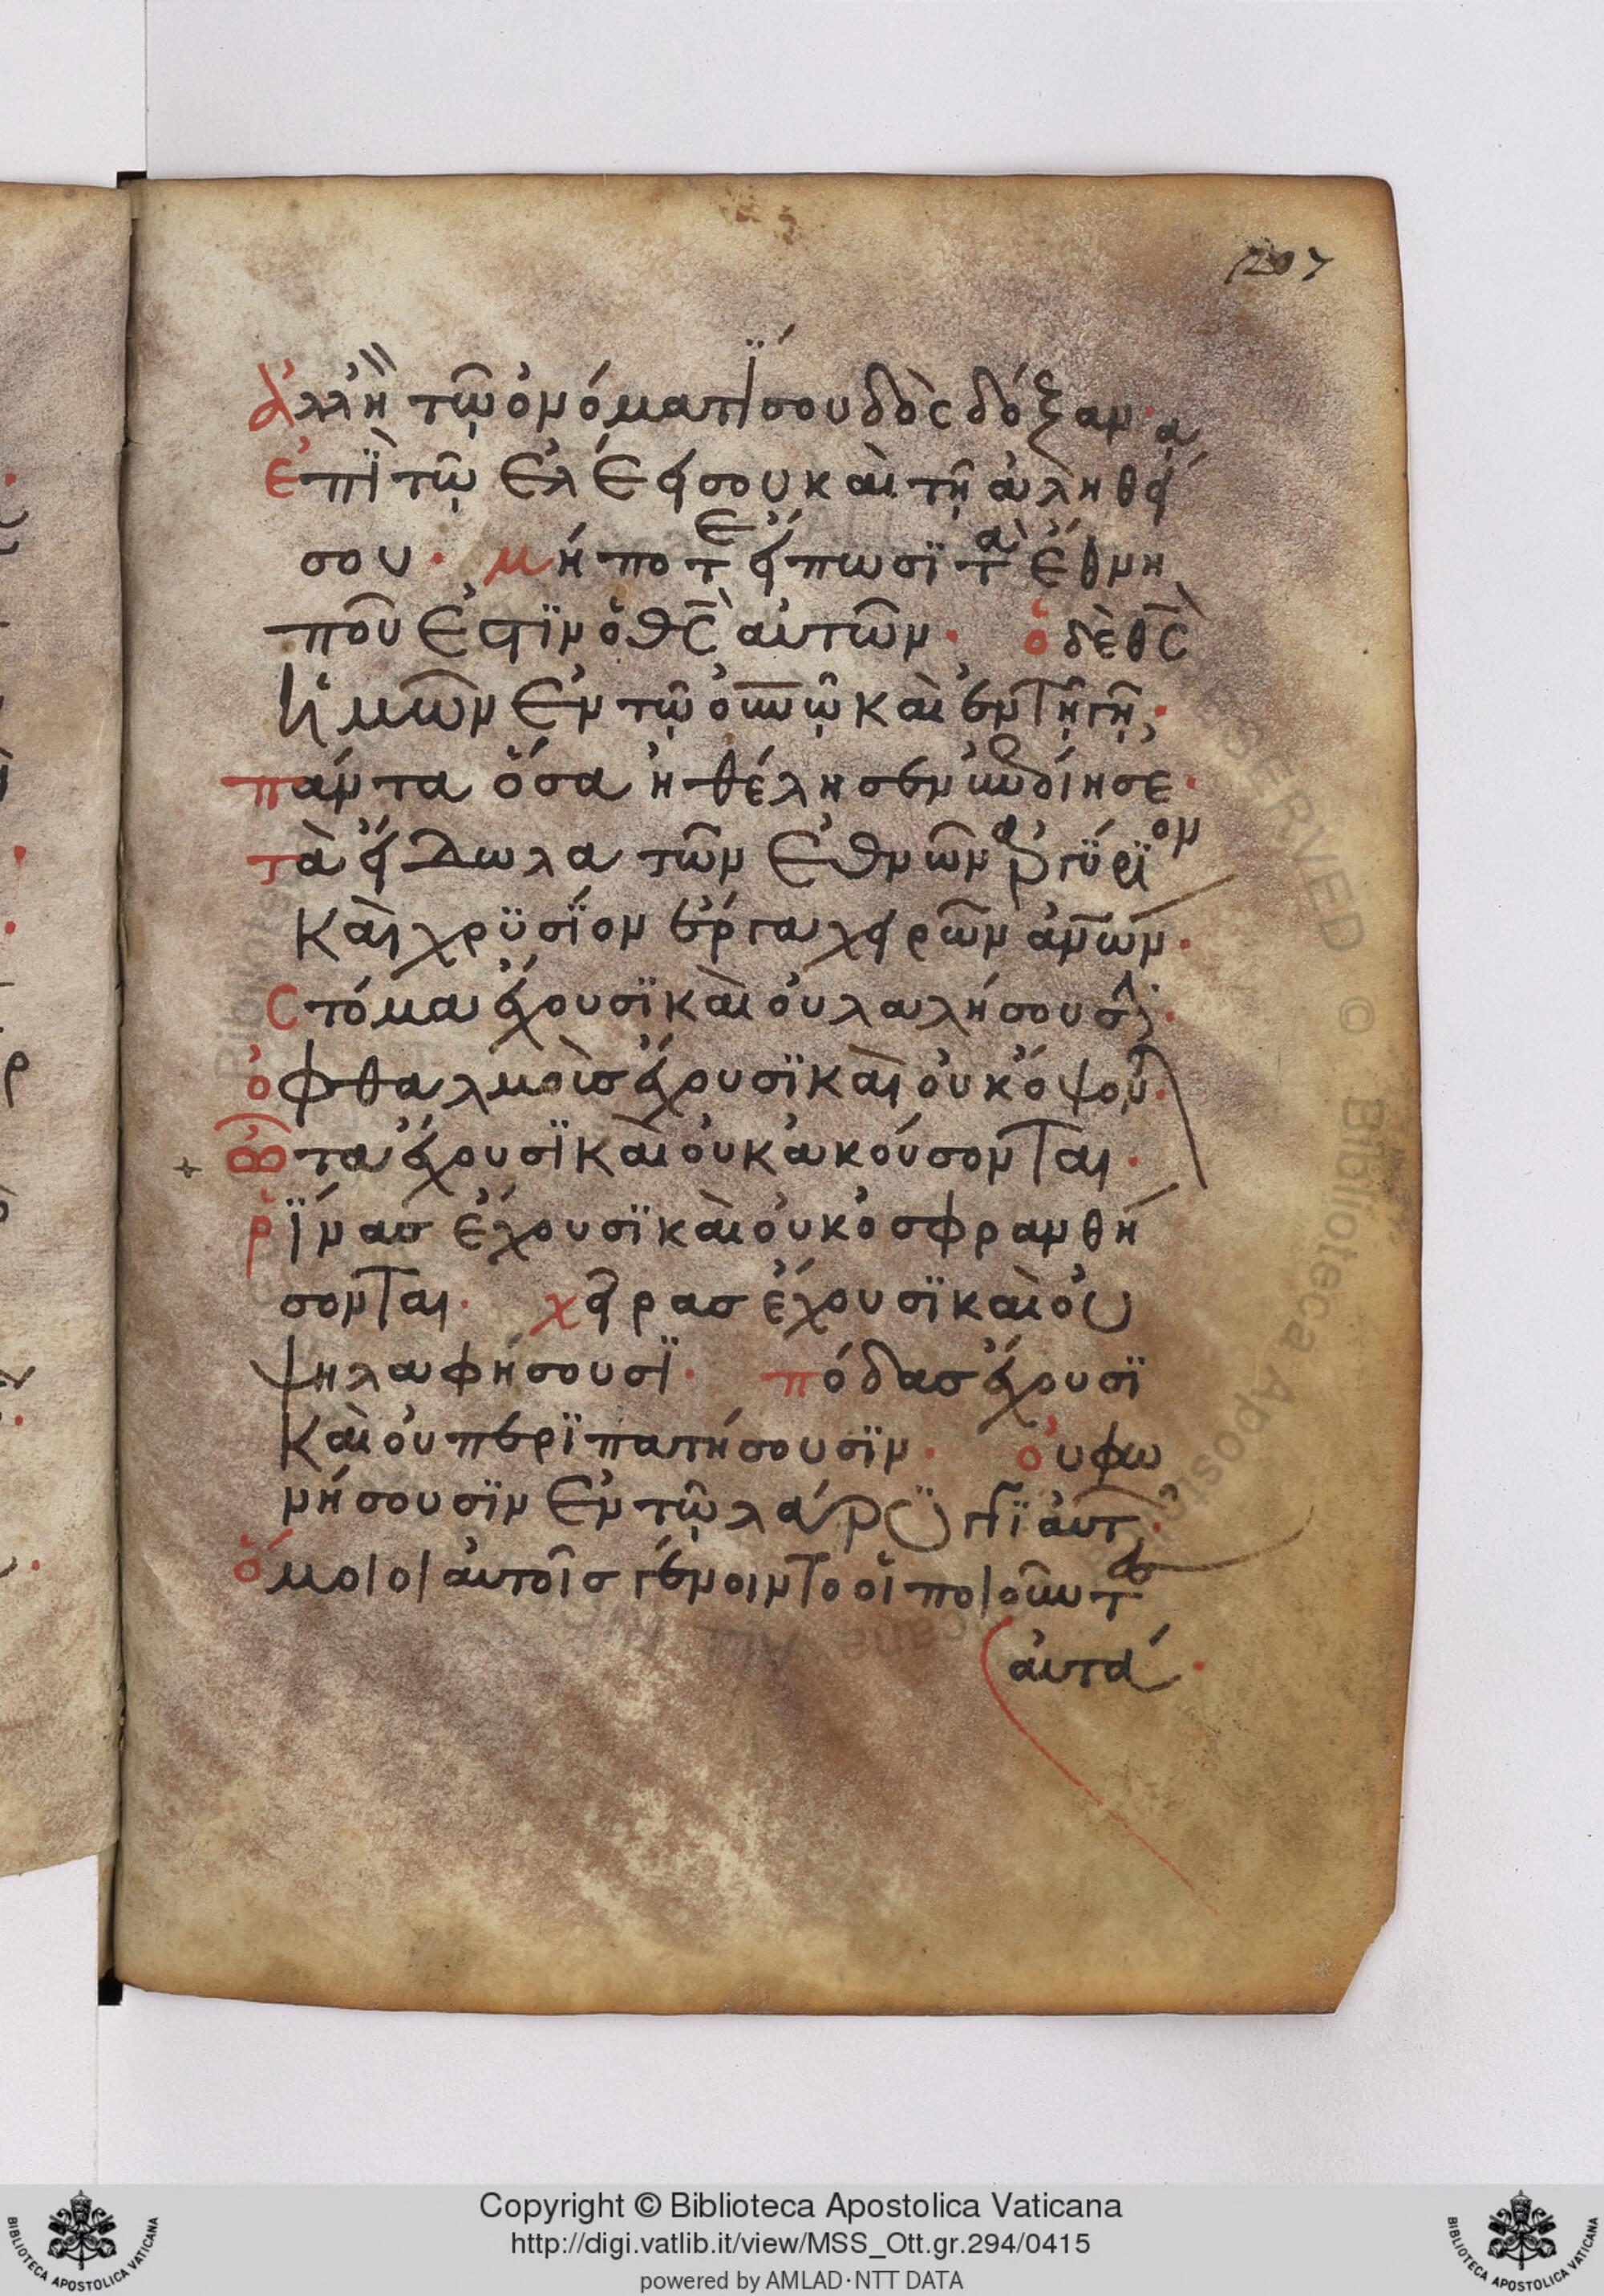 207
ἀλλ' ἢ τῶ ὀνόματί σου δὸς δόξαν·
ἐπὶ τῶ ἐλέει σου καὶ τῆ ἀληθεία
σου· μήποτε εἴπωσι τὰ ἔθνη
ποῦ ἐστιν ὁ θ̅ς̅ αὐτῶν· ὁ δὲ θ̅ς̅
ἡμῶν ἐν τῶ ο̅υ̅ν̅ῶ καὶ ἐν τῆ γῆ·
πάντα ὅσα ἠθέλησεν ἐποίησε·
τὰ εἴδωλα τῶν ἐθνῶν ἀργύριον
καὶ χρυσίον ἔργα χειρῶν α̅ν̅ω̅ν̅·
στόμα ἔχουσι καὶ οὐ λαλήσουσι·
ὀφθαλμοὺσ ἔχουσι καὶ οὐκ ὄψονται·
ὦτα ἔχουσι καὶ οὐκ ἀκούσονται·
ῥίνασ ἔχουσι καὶ οὐκ ὀσφρανθή
σονται· χεῖρασ ἔχουσι καὶ οὐ
ψηλαφήσουσι· πόδασ ἔχουσι
καὶ οὐ περιπατήσουσιν· οὐ φω
νήσουσιν ἐν τῶ λάρυγγι αὐτῶν·
ὅμοιοι αὐτοῖσ γένοιντο οἱ ποιοῦντες
αὐτά·
Copyright © Biblioteca Apostolica Vaticana
http://digi.vatlib.it/view/MSS_Ott.gr.294/0415
powered by AMLAD·NTT DATA
BIBLIOTECA APOSTOLICA VATICANA
BIBLIOTECA APOSTOLICA VATICANA